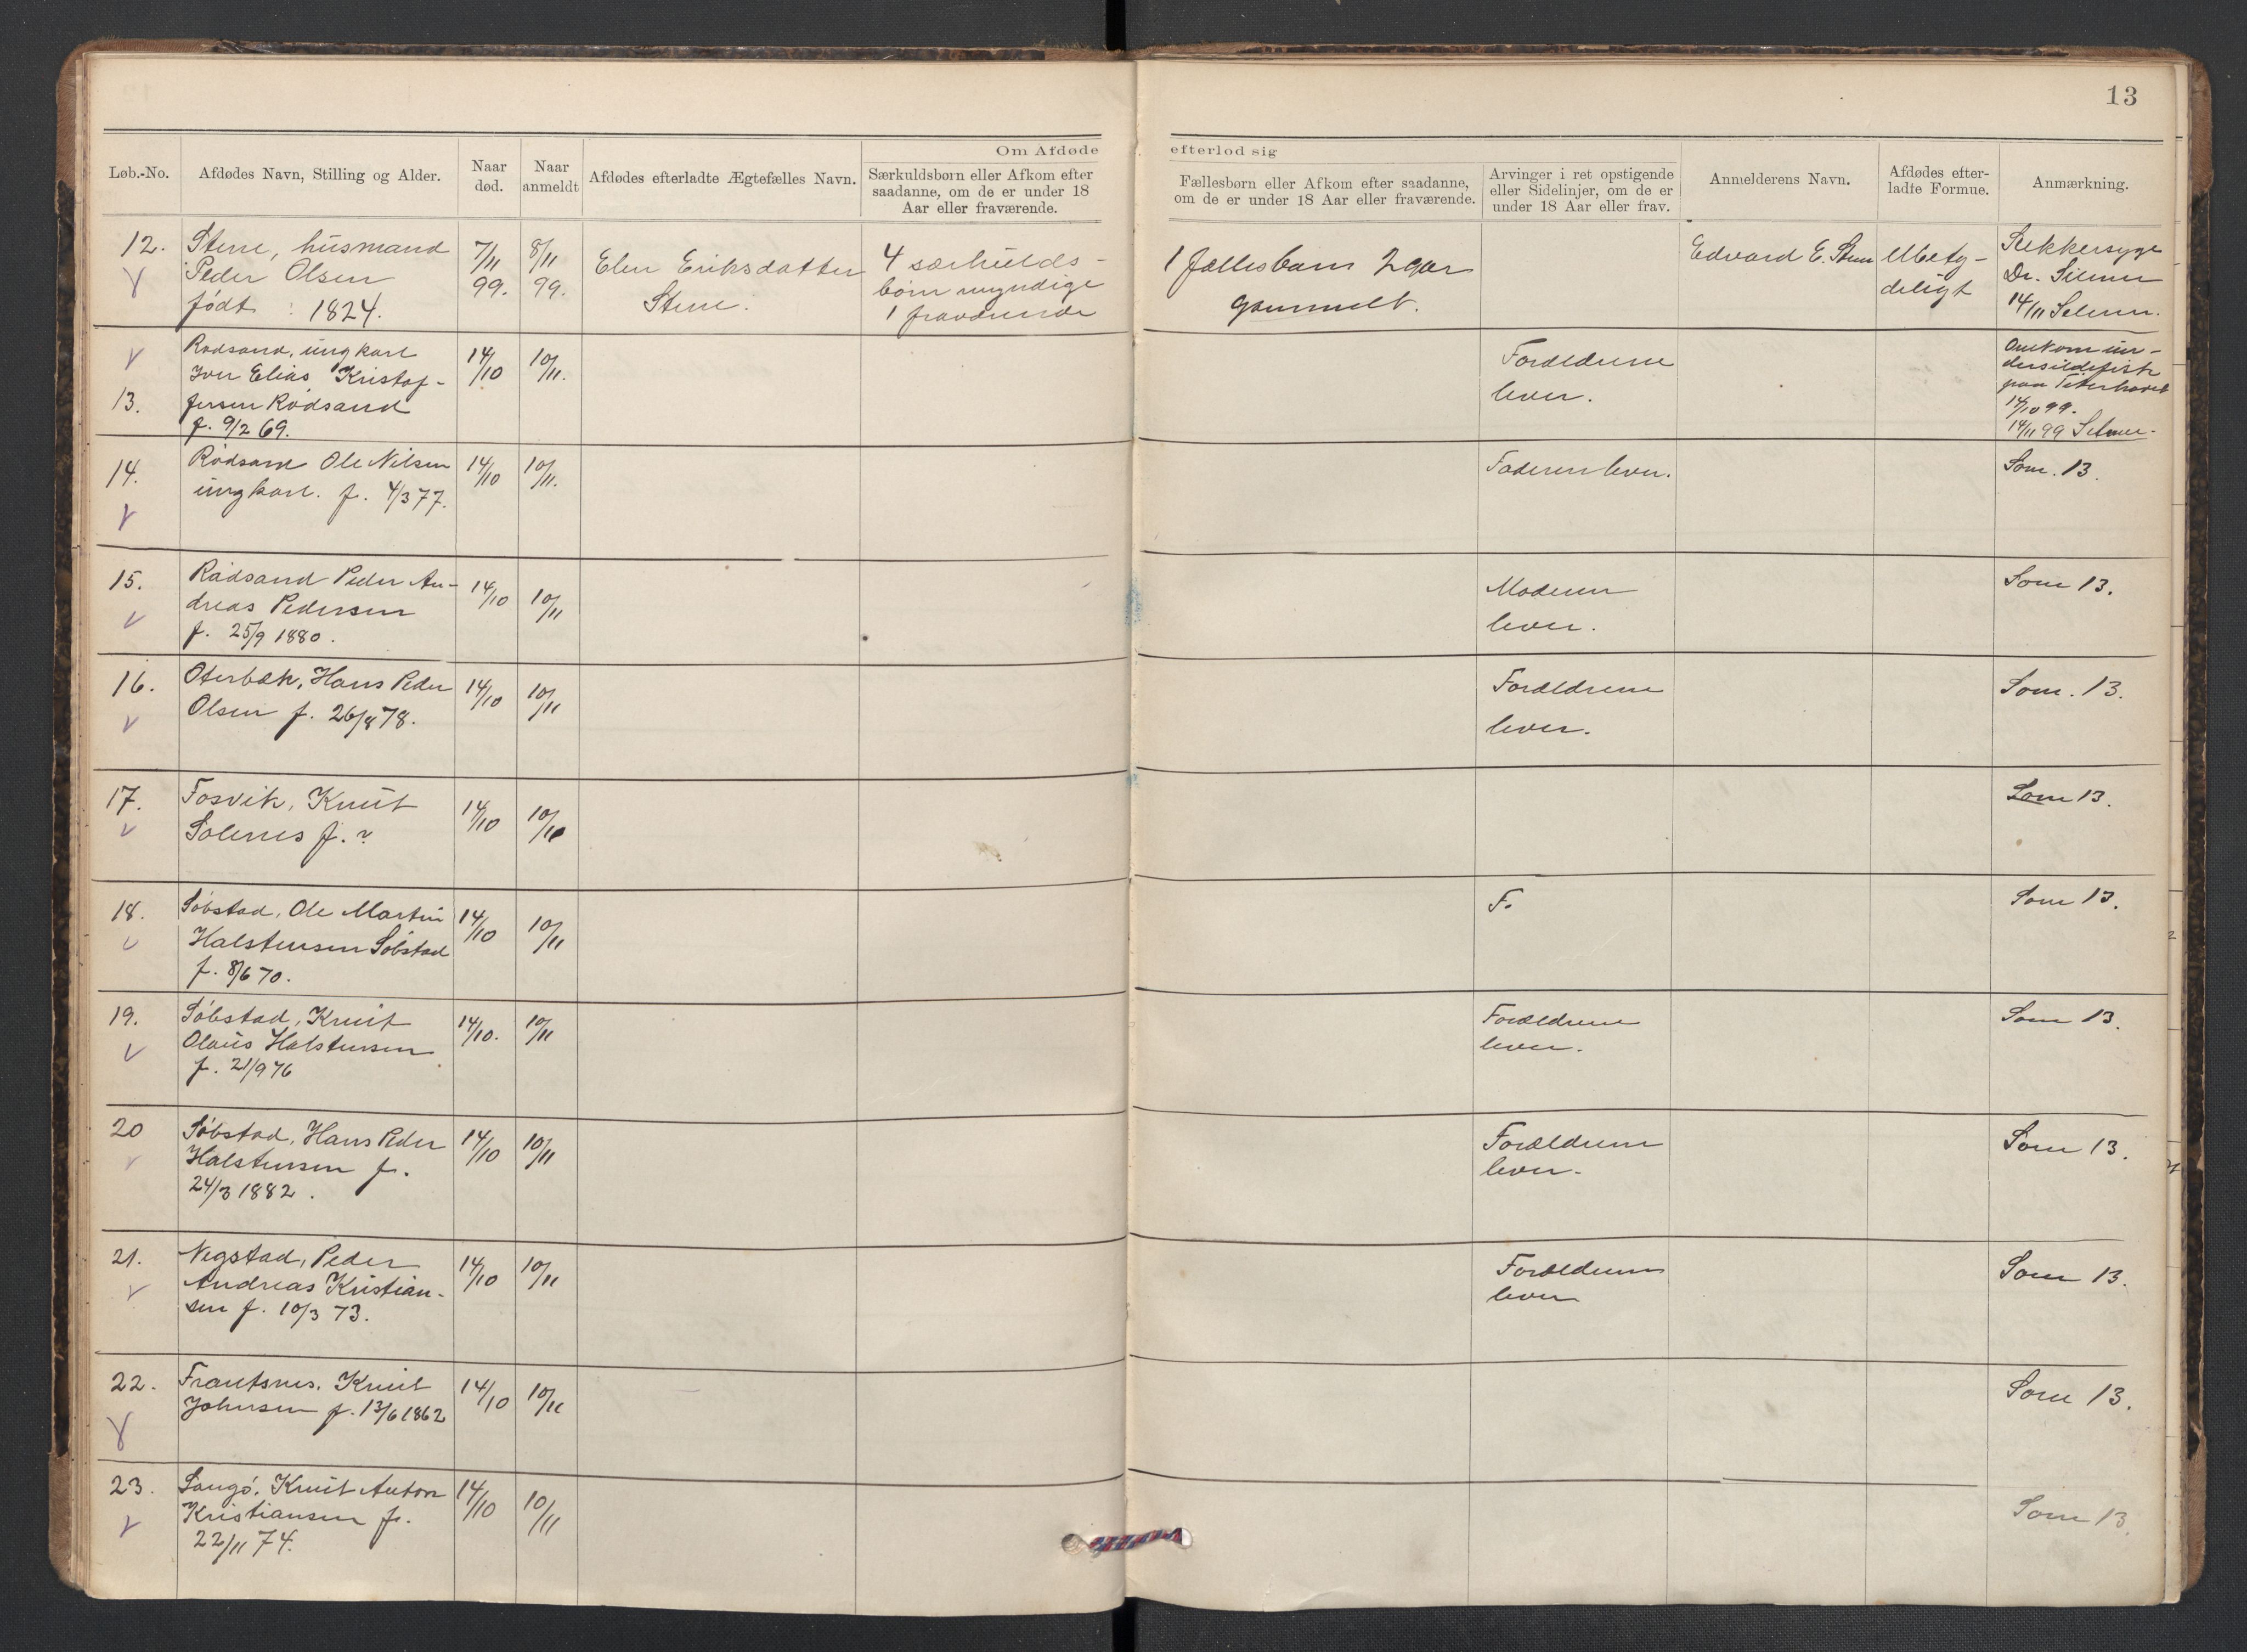 13
Om Afdøde
efterlod sig
Løb.-No.
Afdødes Navn, Stilling og Alder.
Naar død.
Naar anmeldt
Afdødes efterladte Ægtefælles Navn.
Særkuldsbørn eller Afkom efter
saadanne, om de er under 18
Aar eller fraværende.
Fællesbørn eller Afkom efter saadanne,
om de er under 18 Aar eller fraværende.
Arvinger i ret opstigende
eller Sidelinjer, om de er
under 18 Aar eller frav.
Anmelderens Navn.
Afdødes efter-
ladte Formue.
Anmærkning.
12.
Stene, husmand
Peder Olsen
født : 1824.
7/11 99.
8/11 99.
Elen Eriksdatter
Stene.
4 særkulds-
børn myndige
1 fraværende
1 fællesbarn 2 aar
gammelt.
Edvard E. Stene
Ubety-
deligt
Sukkersyge
Dr.
14/11 Selmer.
13.
Rødsand, ungkarl
Iver Elias Kristof-
fersen Rødsand
f. 9/2 69.
14/10
10/11.
Forældrene
lever.
Omkom un-
der sildefisk
paa Titerhavet
14/10 99.
14/11 99 Selmer.
14.
Rødsand Ole Nilsen
ungkarl. f. 4/3 77.
14/10
10/11.
Faderen lever.
Som. 13.
15.
Rødsand Peder An-
dreas Pedersen
f. 25/9 1880.
14/10
10/11
Moderen
lever.
Som 13.
16.
Oterbæk, Hans Peder
Olsen f. 26/8 78.
14/10
10/11
Forældrene
lever.
Som. 13.
17.
Fosvik, Knut
Solenes f. ?
14/10
10/11
Som 13.
18.
Søbstad, Ole Martin
Halstensen Søbstad
f. 8/6 70.
14/10
10/11
F.
Som 13.
19.
Søbstad, Knut
Olaus Halstensen
f. 21/9 76
14/10.
10/11
Forældrene
lever.
Som 13.
20
Søbstad, Hans Peder
Halstensen f.
24/3 1882.
14/10
10/11
Forældrene
lever.
Som 13.
21.
Negstad, Peder
Andreas Kristian-
sen f. 10/3 73.
14/10
10/11
Forældrene
lever
Som 13.
22.
Frantsnes. Knut
Johnsen f. 13/6 1862
14/10
10/11
Som 13.
23.
Sangø, Knut Anton
Kristiansen f.
22/11 74.
14/10
10/11
Som 13.